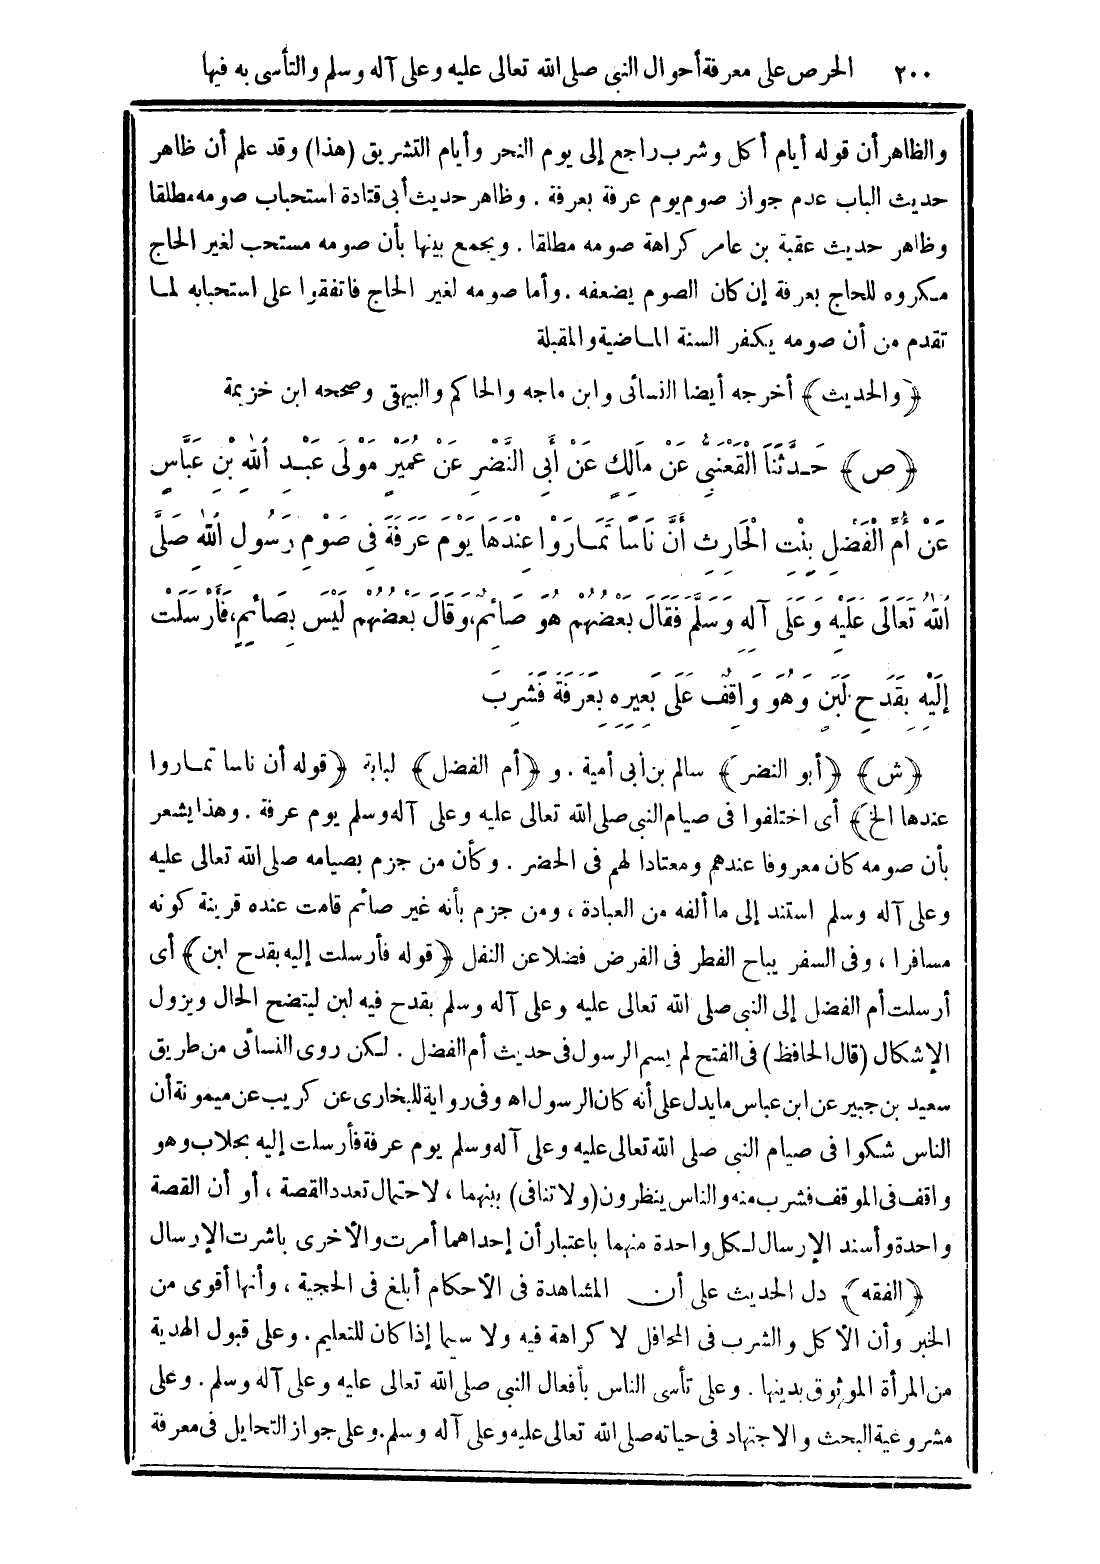 ٢٠٠ الحرص على معرفة أحوال النبي صلى الله تعالى عليه وعلى آله وسلم والتأسى به فيها
والظاهر أن قوله أيام أكل وشرب راجع إلى يوم النحر وأيام التشريق (هذا) وقد علم أن ظاهر
حديث الباب عدم جواز صوم يوم عرفة بعرفة . وظاهر حديث أبى قتادة استحباب صومه مطلقا
وظاهر حديث عقبة بن عامر كراهة صومه مطلقا . ويجمع بينها بأن صومه مستحب لغير الحاج
مكروه للحاج بعرفة إن كان الصوم يضعفه . وأما صومه لغير الحاج فاتفقوا على استحبابه لما
تقدم من أن صومه يكفر السنة الماضية والمقبلة
﴿والحديث﴾ أخرجه أيضا النسائى وابن ماجه والحاكم والبيهقى وصححه ابن خزيمة
﴿ص﴾ حَدَّثَنَا الْقَعْنَبِيُّ عَنْ مَالِكٍ عَنْ أَبِي النَّضْرِ عَنْ عُمَيْرٍ مَوْلَى عَبْدِ اللهِ بْنِ عَبَّاسٍ
عَنْ أُمِّ الْفَضْلِ بِنْتِ الْحَارِثِ أَنَّ نَاسًا تَمَارَوْا عِنْدَهَا يَوْمَ عَرَفَةَ فِي صَوْمِ رَسُولِ اللهِ صَلَّى
اللهُ تَعَالَى عَلَيْهِ وَعَلَى آلِهِ وَسَلَّمَ فَقَالَ بَعْضُهُمْ هُوَ صَائِمٌ، وَقَالَ بَعْضُهُمْ لَيْسَ بِصَائِمٍ، فَأَرْسَلَتْ
إِلَيْهِ بِقَدَحِ لَبَنٍ وَهُوَ وَاقِفٌ عَلَى بَعِيرِهِ بِعَرَفَةَ فَشَرِبَ
﴿ش﴾ ﴿أبو النضر﴾ سالم بن أبى أمية . و﴿أم الفضل﴾ لبابة ﴿قوله أن ناسا تماروا
عندها الخ﴾ أى اختلفوا فى صيام النبى صلى الله تعالى عليه وعلى آله وسلم يوم عرفة . وهذا يشعر
بأن صومه كان معروفا عندهم ومعتادا لهم فى الحضر . وكأن من جزم بصيامه صلى الله تعالى عليه
وعلى آله وسلم استند إلى ما ألفه من العبادة ، ومن جزم بأنه غير صائم قامت عنده قرينة كونه
مسافرا ، وفى السفر يباح الفطر فى الفرض فضلا عن النفل ﴿قوله فأرسلت إليه بقدح لبن﴾ أى
أرسلت أم الفضل إلى النبى صلى الله تعالى عليه وعلى آله وسلم بقدح فيه لبن ليتضح الحال ويزول
الإشكال (قال الحافظ) فى الفتح لم يسم الرسول فى حديث أم الفضل . لكن روى النسائى من طريق
سعيد بن جبير عن ابن عباس ما يدل على أنه كان الرسول اه وفى رواية للبخارى عن كريب عن ميمونة أن
الناس شكوا فى صيام النبى صلى الله تعالى عليه وعلى آله وسلم يوم عرفة فأرسلت إليه بحلاب وهو
واقف فى الموقف فشرب منه والناس ينظرون (ولا تنافى) بينهما ، لاحتمال تعدد القصة ، أو أن القصة
واحدة وأسند الإرسال لكل واحدة منهما باعتبار أن إحداهما أمرت والأخرى باشرت الإرسال
﴿الفقه﴾ دل الحديث على أن المشاهدة فى الأحكام أبلغ فى الحجية ، وأنها أقوى من
الخبر وأن الأكل والشرب فى المحافل لا كراهة فيه ولا سيما إذا كان للتعليم . وعلى قبول الهدية
من المرأة الموثوق بدينها . وعلى تأسى الناس بأفعال النبى صلى الله تعالى عليه وعلى آله وسلم . وعلى
مشروعية البحث والاجتهاد فى حياته صلى الله تعالى عليه وعلى آله وسلم. وعلى جواز التحايل فى معرفة